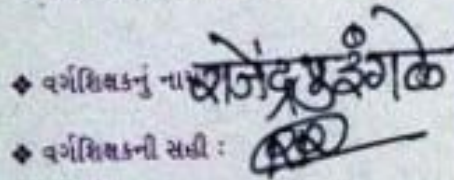 ❖ વર્ગશિક્ષકનું નામ राजेंद्र इंगळे
❖ વર્ગશિક્ષકની સહી :